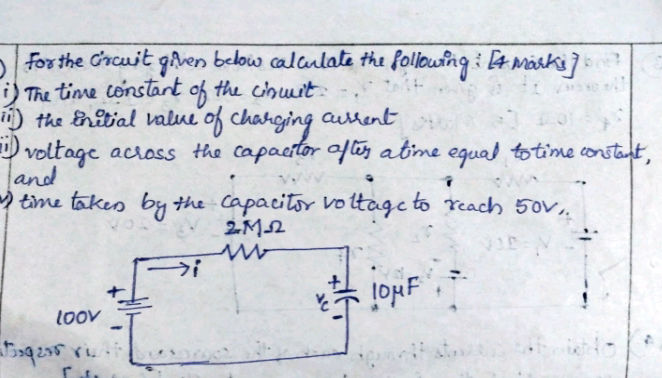 For the circuit given below calculate the following : [4 marks]
i) The time constant of the circuit
ii) the initial value of charging current
iii) voltage across the capacitor after a time equal to time constant,
and
time taken by the capacitor voltage to reach 50V,
2MΩ
→i
+
+
Vc
10µF
100V
-
-